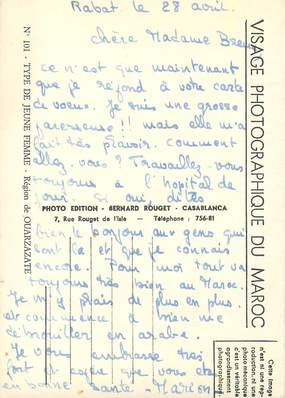 Rabat le 28 avril.
Chère Madame
ce n'est que maintenant
que je répond à votre carte
de voeux. Je suis une grosse
paresseuse!! mais elle m'a
fait très plaisir. Comment
allez-vous? Travaillez-vous
toujours à l'hopital de
jour. Si oui dites
bien le bonjour aux gens qui
sont là et que je connais
encore. Pour moi tout va
toujours très bien au Maroc.
Je m'y plais de plus en plus.
et commence à bien me
débrouiller en arabe.
Je vous embrasse très
fort et espère que vous êtes
en bonne santé. Marion
PHOTO EDITION - BERNARD ROUGET - CASABLANCA
7, Rue Rouget de l'Isle — Téléphone : 756-81
N° 101 - TYPE DE JEUNE FEMME - Région de OUARZAZATE
VISAGE PHOTOGRAPHIQUE DU MAROC
Cette image
n'est ni une rep-
roduction, ni une
photo mécanique
c'est un véritable
agrandissement
photographique